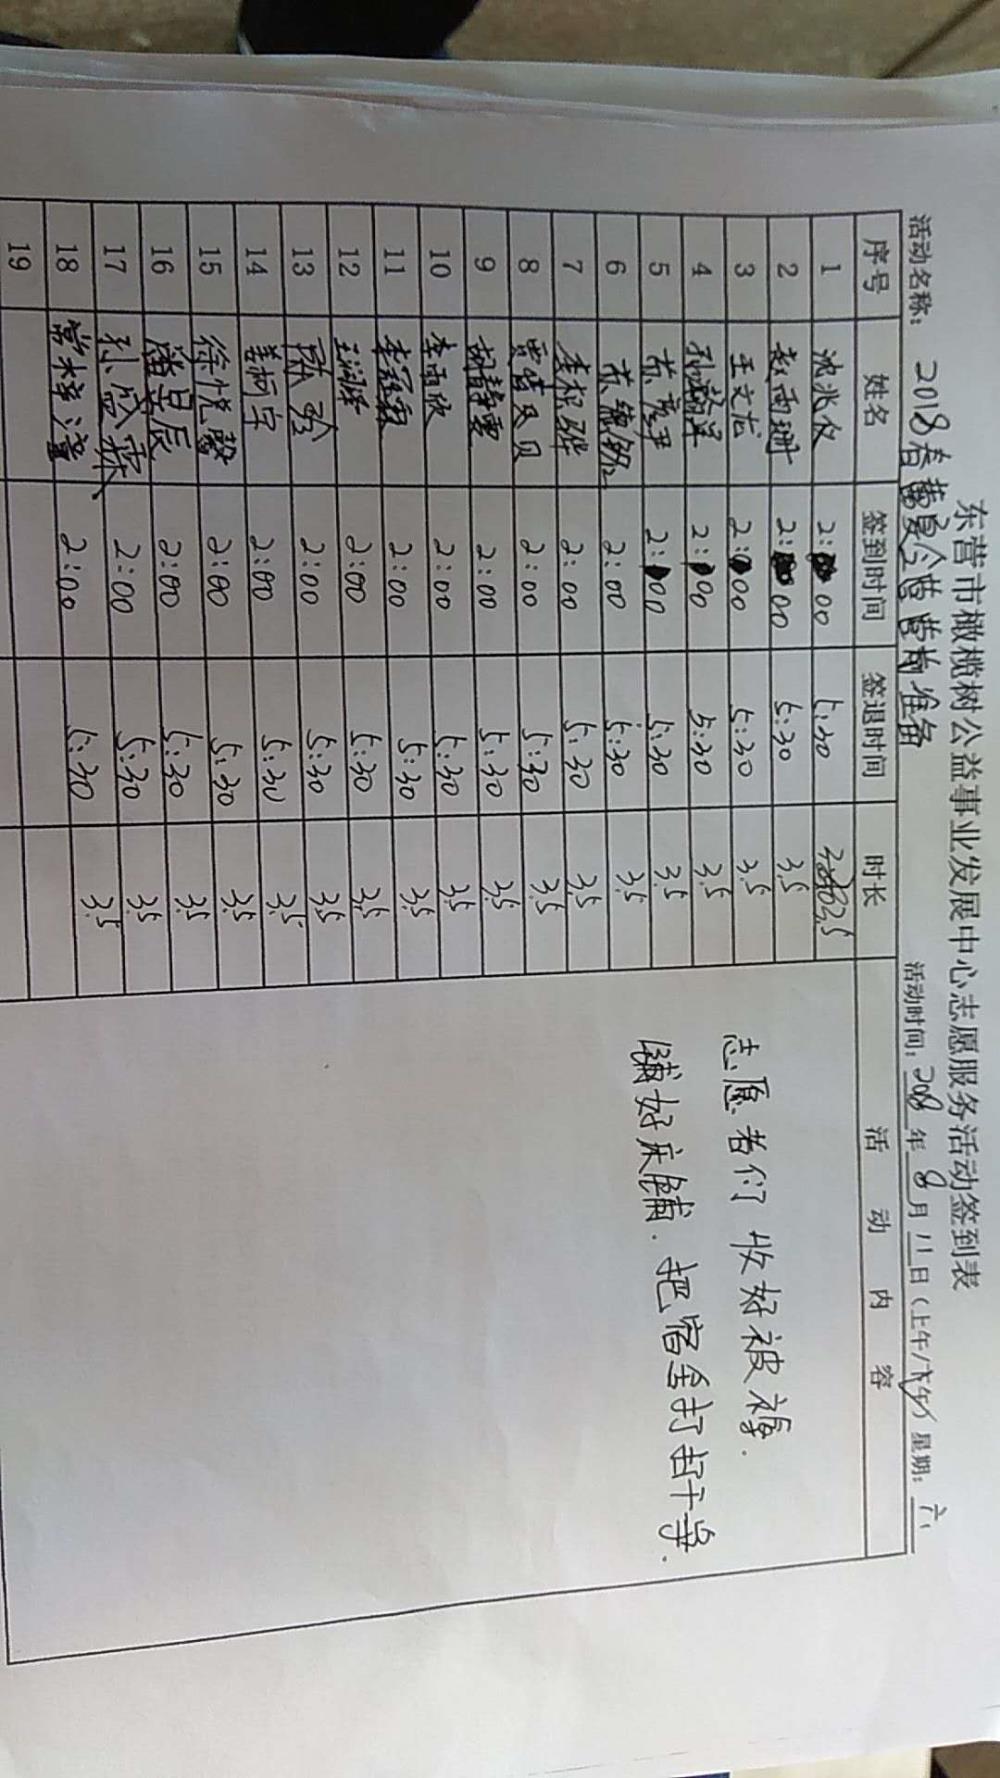 东营市橄榄树公益事业发展中心志愿服务活动签到表
活动名称: 2018春蕾夏令营营前准备 活动时间: 2018年8月11日(上午/下午) 星期: 六
序号 姓名 签到时间 签退时间 时长 活动内容
1 沈兆仪 2:00 5:30 3.5
2 赵雨珊 2:00 5:30 3.5
3 王文龙 2:00 5:30 3.5
4 孙瀚洋 2:00 5:30 3.5
5 2:00 5:30 3.5
6 2:00 5:30 3.5
7 2:00 5:30 3.5
8 贾倩贝贝 2:00 5:30 3.5
9 胡静雯 2:00 5:30 3.5
10 李雨欣 2:00 5:30 3.5
11 2:00 5:30 3.5
12 2:00 5:30 3.5
13 2:00 5:30 3.5
14 2:00 5:30 3.5
15 徐悦馨 2:00 5:30 3.5
16 潘昱辰 2:00 5:30 3.5
17 孙盛霖 2:00 5:30 3.5
18 2:00 5:30 3.5
19
志愿者们收好被褥.
铺好床铺.把宿舍打扫干净.